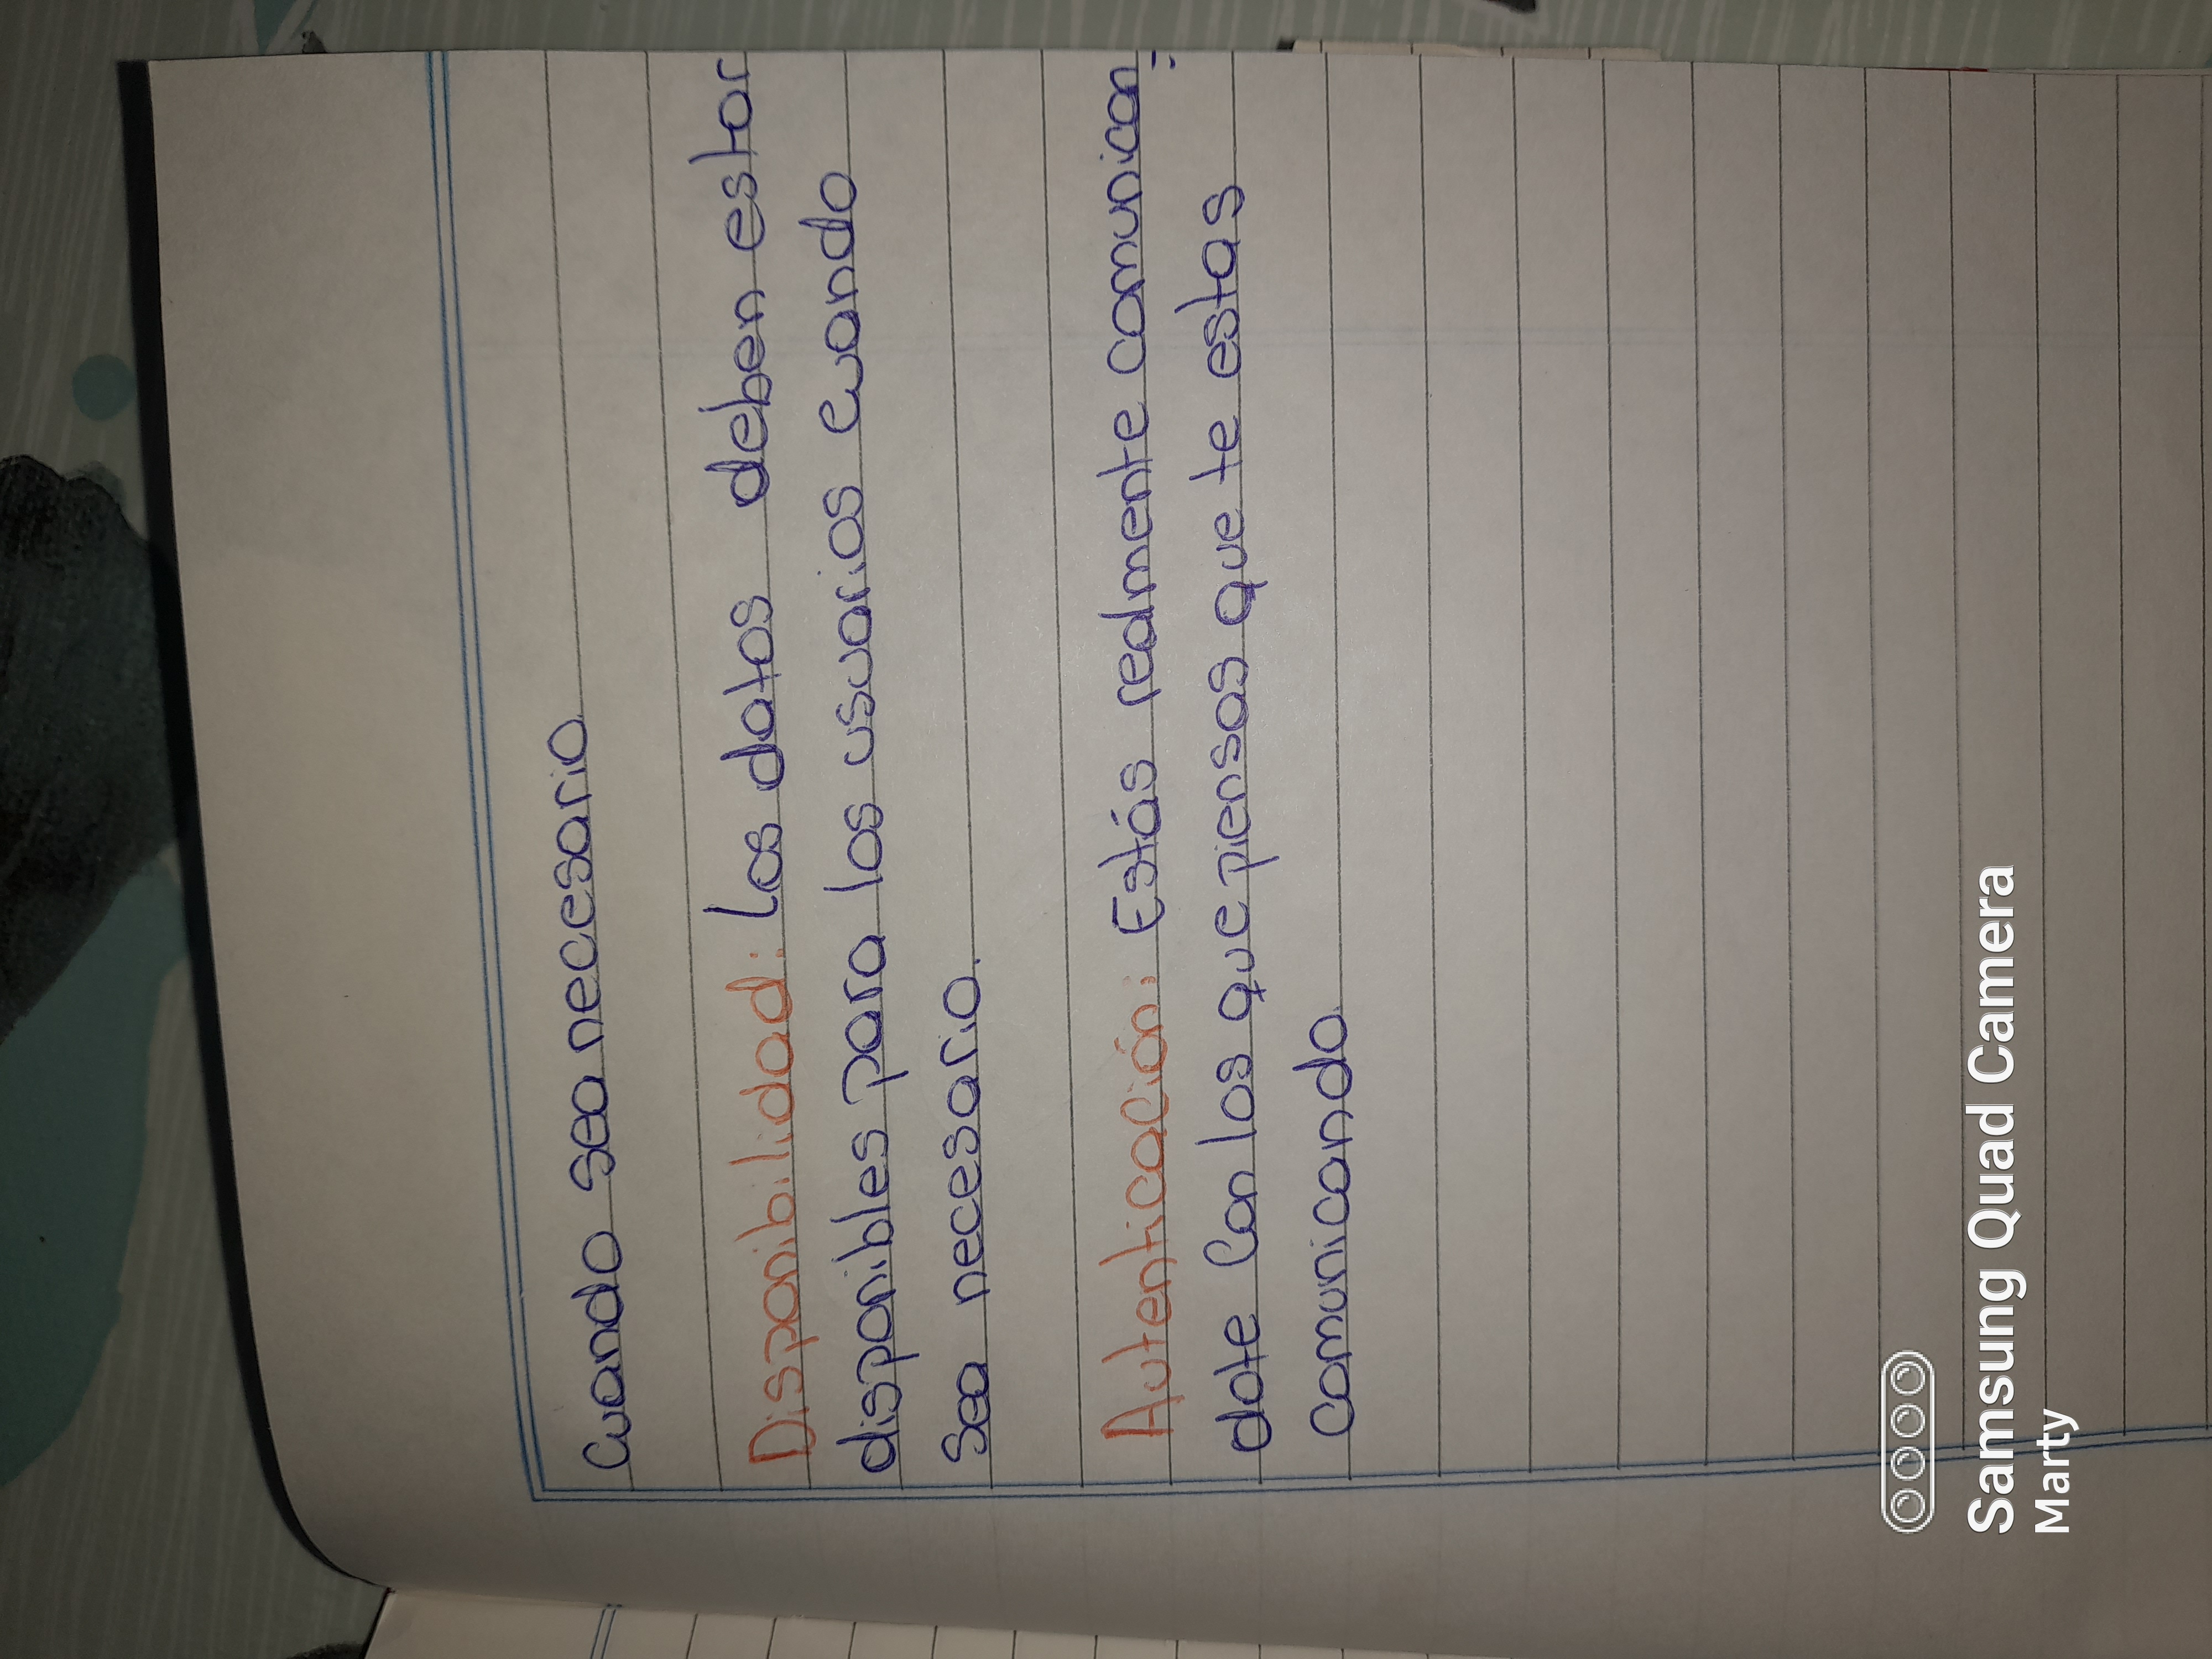 Cuando sea necesario.
Disponibilidad: Los datos deben estar
disponibles para los usuarios cuando
sea necesario.
Autenticación: Estás realmente comunican-
dote Con los que piensas que te estas
Comunicando.
Samsung Quad Camera
Marty